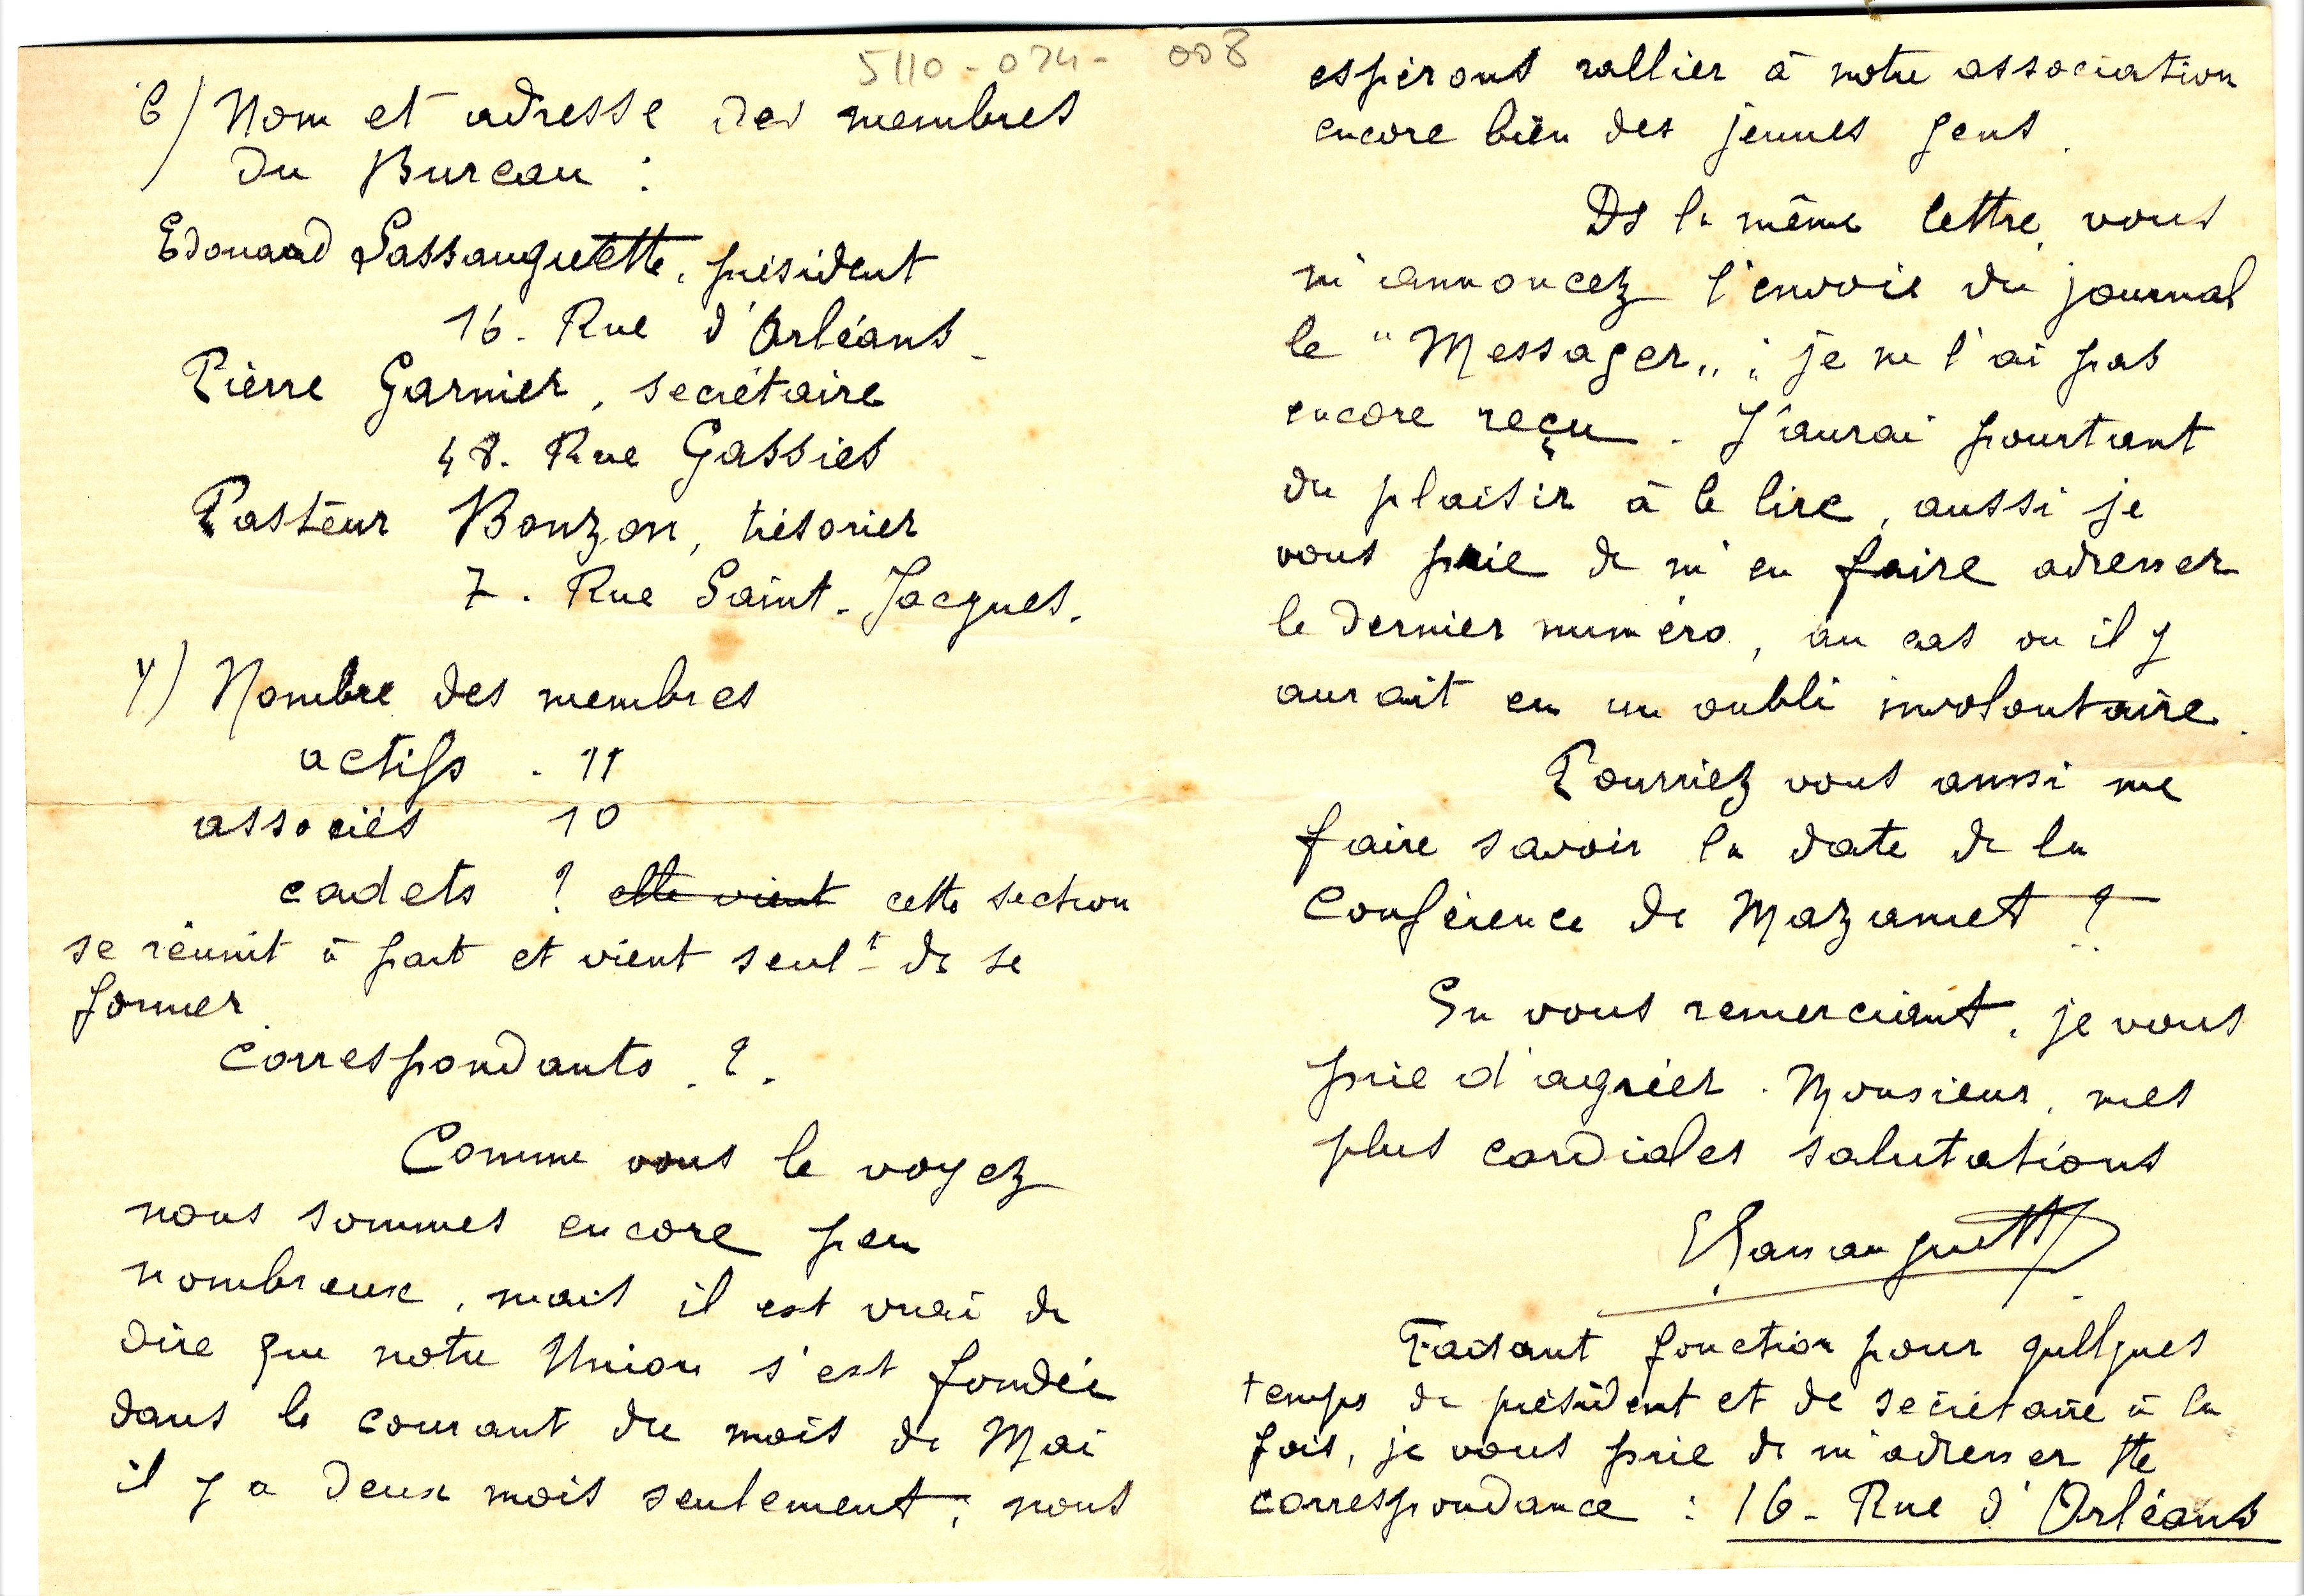 5110-024-008
6) Nom et adresse des membres
du Bureau :
Edouard Lassanguette, président
16. Rue d'Orléans.
Pierre Garnier, secrétaire
48. Rue Gassies
Pasteur Bonzon, trésorier
7. Rue Saint-Jacques.
7) Nombre des membres
actifs . 11
associés 10
cadets ? elle vient cette section
se réunit à part et vient seult de se
former.
Correspondants . ? .
Comme vous le voyez
nous sommes encore peu
nombreux, mais il est vrai de
dire que notre Union s'est fondée
dans le courant du mois de Mai
il y a deux mois seulement ; nous
espérons rallier à notre association
encore bien des jeunes gens.
Ds la même lettre, vous
m'annoncez l'envoie du journal
le "Messager" ; je ne l'ai pas
encore reçu. J'aurai pourtant
du plaisir à le lire, aussi je
vous prie de m'en faire adresser
le dernier numéro, au cas ou il y
aurait eu un oubli involontaire.
Pourriez vous aussi me
faire savoir la date de la
Conférence de Mazamet ?
En vous remerciant, je vous
prie d'agréer. Monsieur, mes
plus cordiales salutations
ELassanguette
Faisant fonction pour quelques
temps de président et de secrétaire à la
fois, je vous prie de m'adresser tte
correspondance : 16. Rue d'Orléans